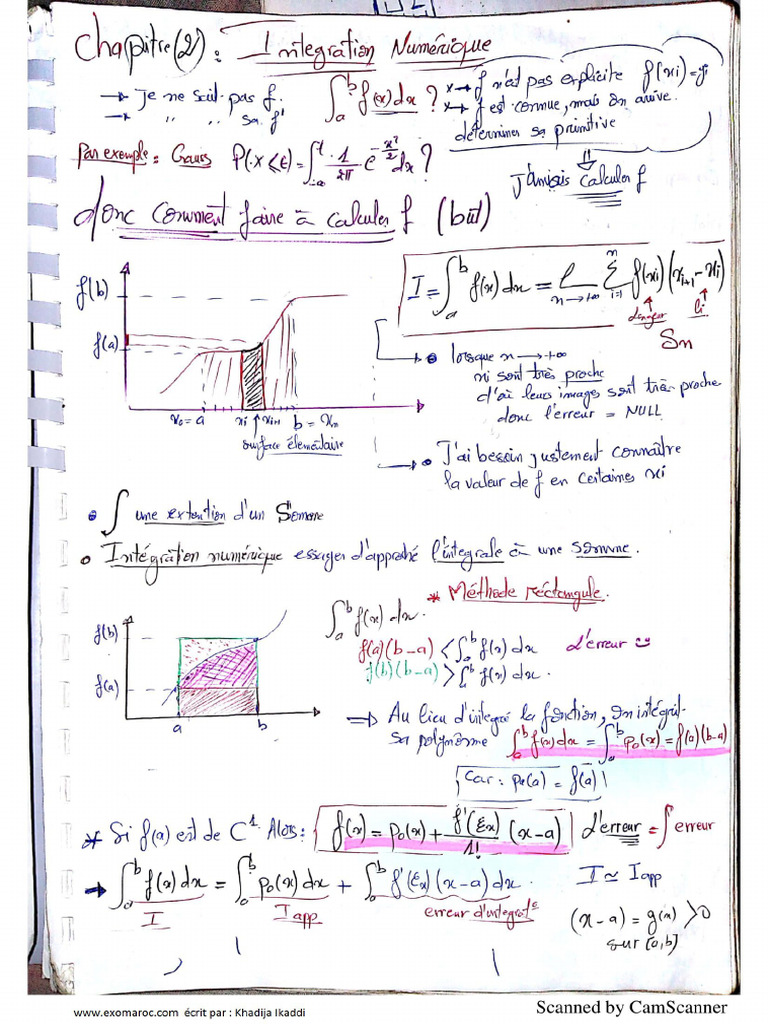 Chapitre(2): Integration Numérique
→ Je ne sait pas f.
→ " " sa f'
∫_a^b f(x) dx ?
*→ f n'est pas explicite f(xi)=yi
*→ f est connue, mais on arrive
determines sa primitive
⇓
J'amais calculer f
Par exemple: Gauss P(X≤t) = ∫_{-∞}^t 1/2π e^{-x²/2} dx ?
donc comment faire à calculer f (but)
I = ∫_a^b f(x) dx = lim_{n→+∞} Σ_{i=1}^n f(xi) (x_{i+1} - xi)
Sn
f(b)
f(a)
x₀ = a xi x_{i+1} b = xn
surface élémentaire
→ • lorsque n → +∞
xi sont très proche
d'où leurs images sont très proche
donc l'erreur = NULL
→ • J'ai besoin justement connaître
la valeur de f en certaines xi
• ∫ une extention d'un Somme
• Intégration numérique essayer d'approché l'intégrale à une somme.
* Méthode réctangule.
∫_a^b f(x) dx.
f(a)(b-a) < ∫_a^b f(x) dx L'erreur ☺
f(b)(b-a) > ∫_a^b f(x) dx.
f(b)
f(a)
a b
⇒ Au lieu d'integré la fonction, on intégré
sa polynôme ∫_a^b f(x) dx = ∫_a^b p₀(x) = f(a)(b-a)
car: p₀(a) = f(a)
* Si f(a) est de C¹ Alors: f(x) = p₀(x) + f'(ξx)/1! (x-a) L'erreur = ∫ erreur
→ ∫_a^b f(x) dx = ∫_a^b p₀(x) dx + ∫_a^b f'(ξx)(x-a) dx. I ≃ Iapp
I Iapp erreur d'integrat°
(x-a) = g(x) > 0
sur [a,b]
www.exomaroc.com écrit par : Khadija Ikaddi
Scanned by CamScanner